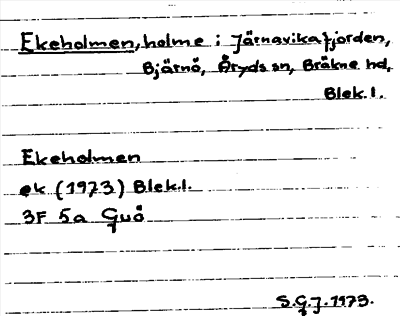 Ekeholmen, holme i Järnavikafjorden,
Bjärnö, Åryds sn, Bräkne hd,
Blek.l.
Ekeholmen
ek (1973) Blek.l.
3F 5a Guö
S.G.J. 1973.